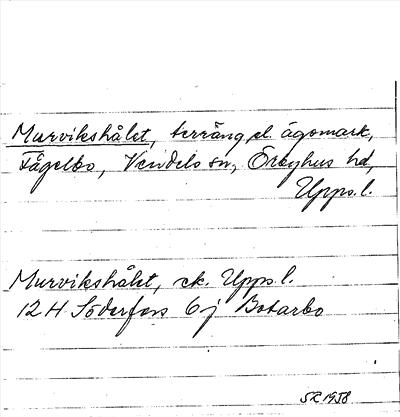 Murvikshålet, terräng el. ägomark,
Fågelbo, Vendels sn, Örbyhus hd,
Upps. l.
Murvikshålet, ek. Upps. l.
12 H Söderfors 6 j Botarbo
SR 1958